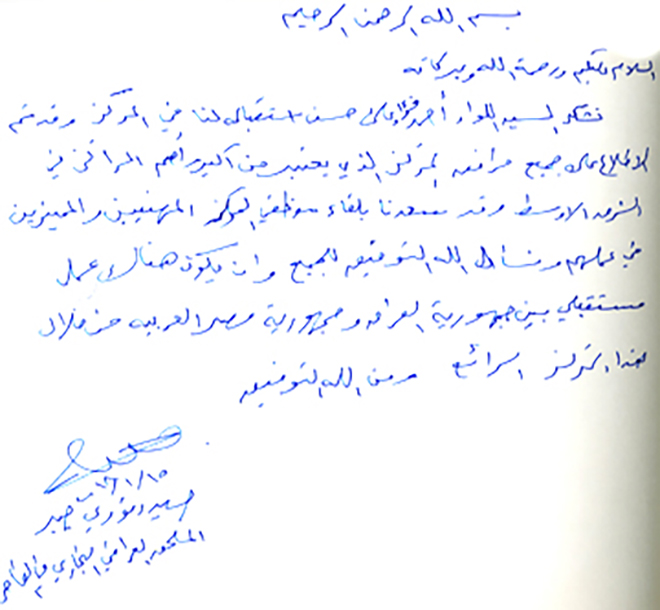 بسم الله الرحمن الرحيم
السلام عليكم ورحمة الله وبركاته
نشكر السيد اللواء أحمد على حسن استقباله لنا في المركز وقد تم
الاطلاع على جميع مرافق المركز الذي يعتبر من أكبر وأهم المراكز في
الشرق الاوسط وقد سعدنا بلقاء موظفي المركز المهنيين والمميزين
في عملهم ونسأل الله التوفيق للجميع وان يكون هناك عمل
مستقبلي بين جمهورية العراق وجمهورية مصر العربيه من خلال
هذا المركز الرائع ومن الله التوفيق
نوري
الملحق العراقي التجاري في القاهرة